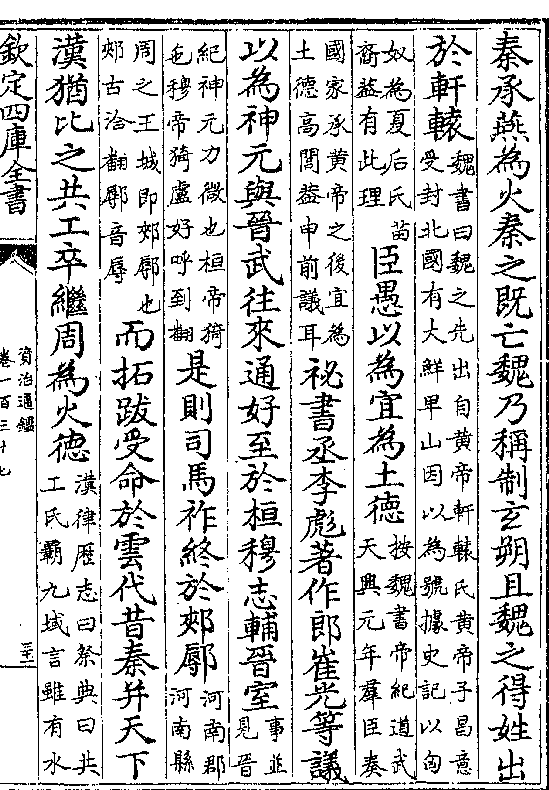 秦承燕為火秦之既亡魏乃稱制玄朔且魏之得姓出
於軒轅魏書曰魏之先出自黄帝軒轅氏黄帝子昌意受封北國有大鮮卑山因以為號據史記以匈
奴為夏后氏苗裔葢有此理臣愚以為宜為土德按魏書帝紀道武天興元年羣臣奏
國家承黄帝之後宜為土德高閭葢申前議耳祕書丞李彪著作郎崔光等議
以為神元與晉武往來通好至於桓穆志輔晉室事並見晉
紀神元力微也桓帝猗㐌穆帝猗盧好呼到翻是則司馬祚終於郟鄏河南郡河南縣
周之王城即郟鄏也郟古洽翻鄏音辱而拓跋受命於雲代昔秦并天下
漢猶比之共工卒繼周為火德漢律歷志曰祭典曰共工氏霸九域言雖有水
欽定四庫全書
資治通鑑
卷一百三十七